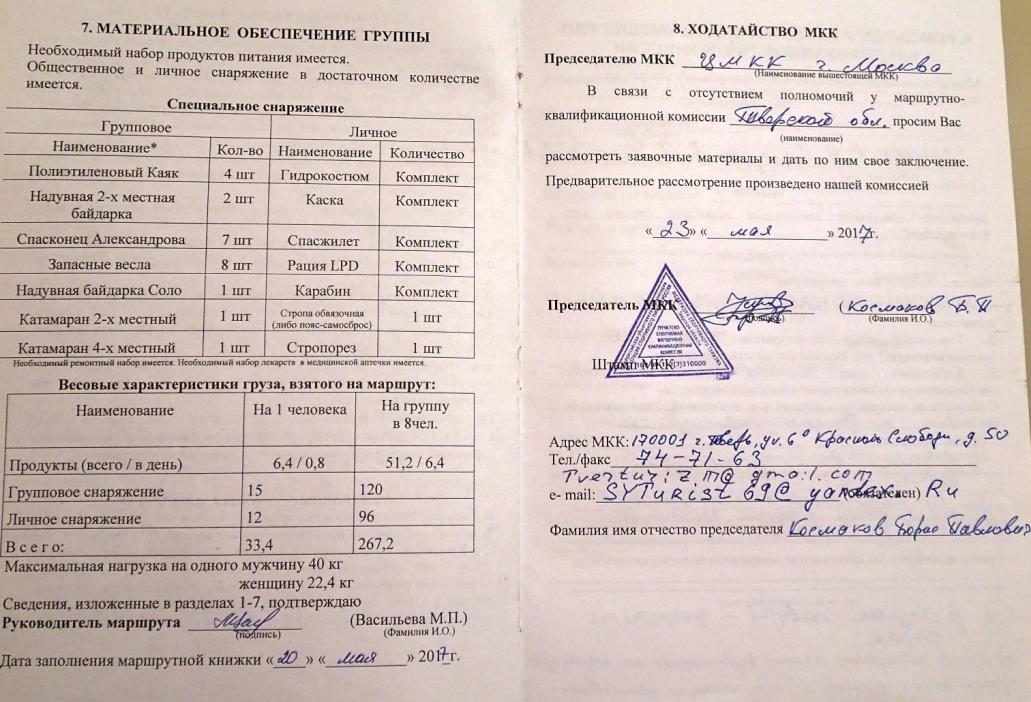 7. МАТЕРИАЛЬНОЕ ОБЕСПЕЧЕНИЕ ГРУППЫ
Необходимый набор продуктов питания имеется.
Общественное и личное снаряжение в достаточном количестве
имеется.
Специальное снаряжение
Групповое Личное
Наименование* Кол-во Наименование Количество
Полиэтиленовый Каяк 4 шт Гидрокостюм Комплект
Надувная 2-х местная
байдарка 2 шт Каска Комплект
Спасконец Александрова 7 шт Спасжилет Комплект
Запасные весла 8 шт Рация LPD Комплект
Надувная байдарка Соло 1 шт Карабин Комплект
Катамаран 2-х местный 1 шт Стропа обвязочная
(либо пояс-самосброс) 1 шт
Катамаран 4-х местный 1 шт Стропорез 1 шт
Необходимый ремонтный набор имеется. Необходимый набор лекарств в медицинской аптечки имеется.
Весовые характеристики груза, взятого на маршрут:
Наименование На 1 человека На группу
в 8чел.
Продукты (всего / в день) 6,4 / 0,8 51,2 / 6,4
Групповое снаряжение 15 120
Личное снаряжение 12 96
В с е г о: 33,4 267,2
Максимальная нагрузка на одного мужчину 40 кг
женщину 22,4 кг
Сведения, изложенные в разделах 1-7, подтверждаю
Руководитель маршрута (Васильева М.П.)
(подпись) (Фамилия И.О.)
Дата заполнения маршрутной книжки «20» «мая» 2017г.
8. ХОДАТАЙСТВО МКК
Председателю МКК ЦМКК г. Москва
(Наименование вышестоящей МКК)
В связи с отсутствием полномочий у маршрутно-
квалификационной комиссии Тверской обл. просим Вас
(наименование)
рассмотреть заявочные материалы и дать по ним свое заключение.
Предварительное рассмотрение произведено нашей комиссией
«23» «мая» 2017г.
Председатель МКК (Космаков Б.П
(подпись) (Фамилия И.О.)
Штамп МКК
Адрес МКК: 170001 г. Тверь, ул. 6о Красной Слободы, д. 50
Тел./факс 74-71-63
Tverturizm@gmail.com
e- mail: SYTurist69@yandex. (обязателен) Ru
Фамилия имя отчество председателя Космаков Борис Павлович